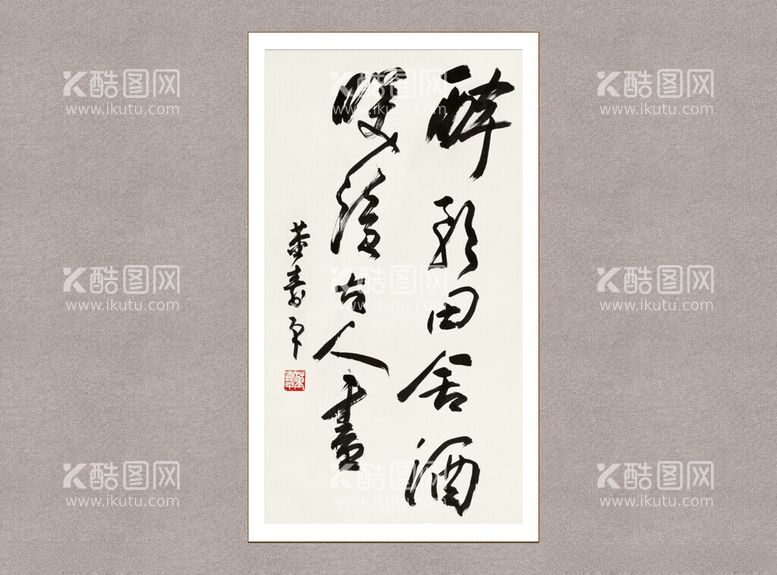 醉歌田舍酒
咲讀古人書
董寿平
酷图网
www.ikutu.com
酷图网
www.ikutu.com
酷图网
www.ikutu.com
酷图网
www.ikutu.com
酷图网
www.ikutu.com
酷图网
www.ikutu.com
酷图网
www.ikutu.com
酷图网
www.ikutu.com
酷图网
www.ikutu.com